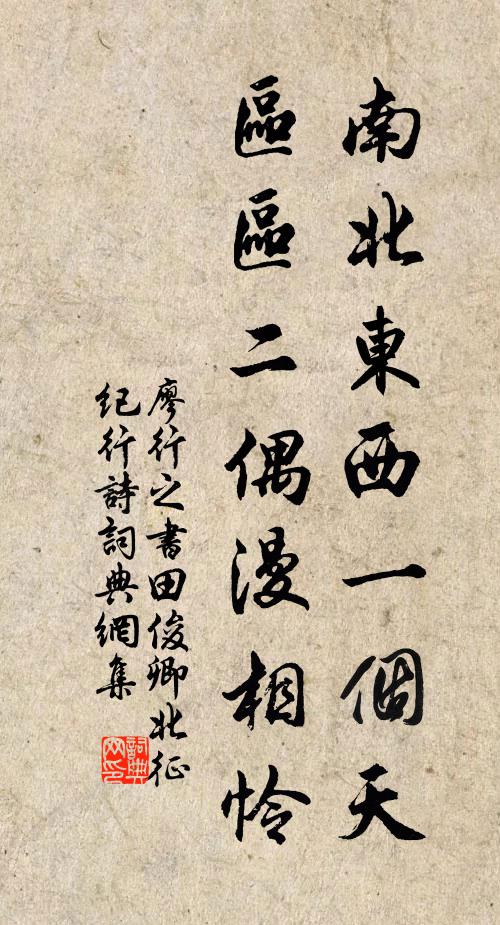 南北東西一個天
區區二偶漫相怜
廖行之書田俊卿北征
紀行詩詞典網集
詞典
网印